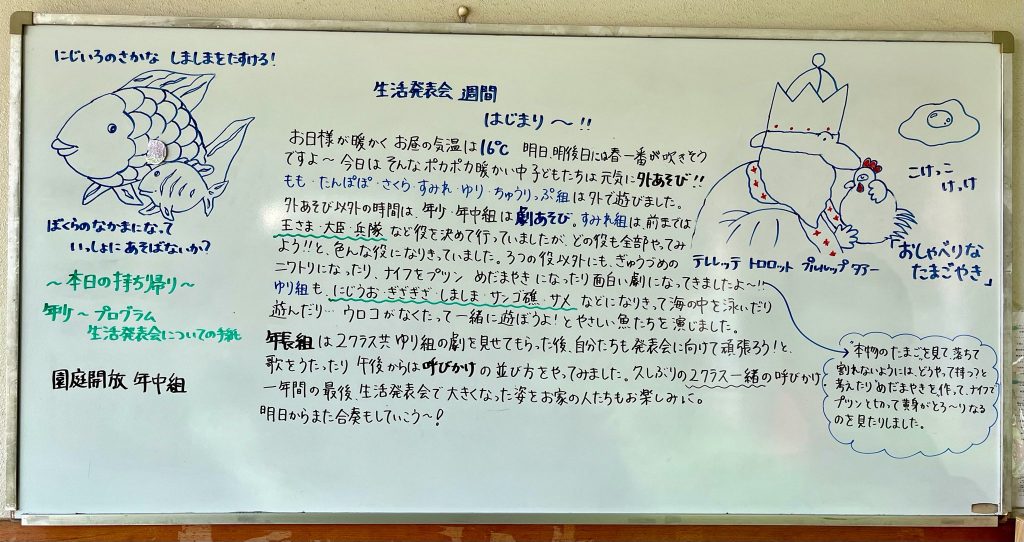 にじいろのさかな しましまをたすけろ!
ぼくらのなかまになって
いっしょにあそばないか?
〜本日の持ち帰り〜
年少〜プログラム
生活発表会についての手紙
園庭開放 年中組
生活発表会 週間
はじまり〜!!
お日様が暖かく お昼の気温は16℃ 明日、明後日には春一番が吹きそう
ですよ〜 今日は そんなポカポカ暖かい中 子どもたちは 元気に外あそび!!
もも・たんぽぽ・さくら・すみれ・ゆり・ちゅうりっぷ組は外で遊びました。
外あそび以外の時間は、年少・年中組は劇あそび。すみれ組は、前までは
王さま・大臣・兵隊 など役を決めて行っていましたが、どの役も全部やってみ
よう!!と、色んな役になりきっていました。3つの役以外にも、ぎゅうづめの
ニワトリになったり、ナイフをプリン めだまやきになったり面白い劇になってきましたよ〜!!
ゆり組も、にじうお・ぎざぎざ・しましま・サンゴ礁・サメ などになりきって海の中を泳いだり
遊んだり… ウロコがなくたって一緒に遊ぼうよ!とやさしい魚たちを演じました。
年長組は2クラス共、ゆり組の劇を見せてもらった後、自分たちも発表会に向けて頑張ろう!と、
歌をうたったり 午後からは呼びかけの並び方をやってみました。久しぶりの2クラス一緒の呼びかけ
一年間の最後、生活発表会で大きくなった姿をお家の人たちもお楽しみに。
明日からまた合奏もしていこう〜!
こけっこ
けっけ
「おしゃべりな
たまごやき」
テレレッテ トロロット プルルップ タター
本物のたまごを見て、落ちて
割れないようには、どうやって持つ?と
考えたり めだまやきを作って、ナイフで
プリンと切って黄身がとろ〜りなる
のを見たりしました。